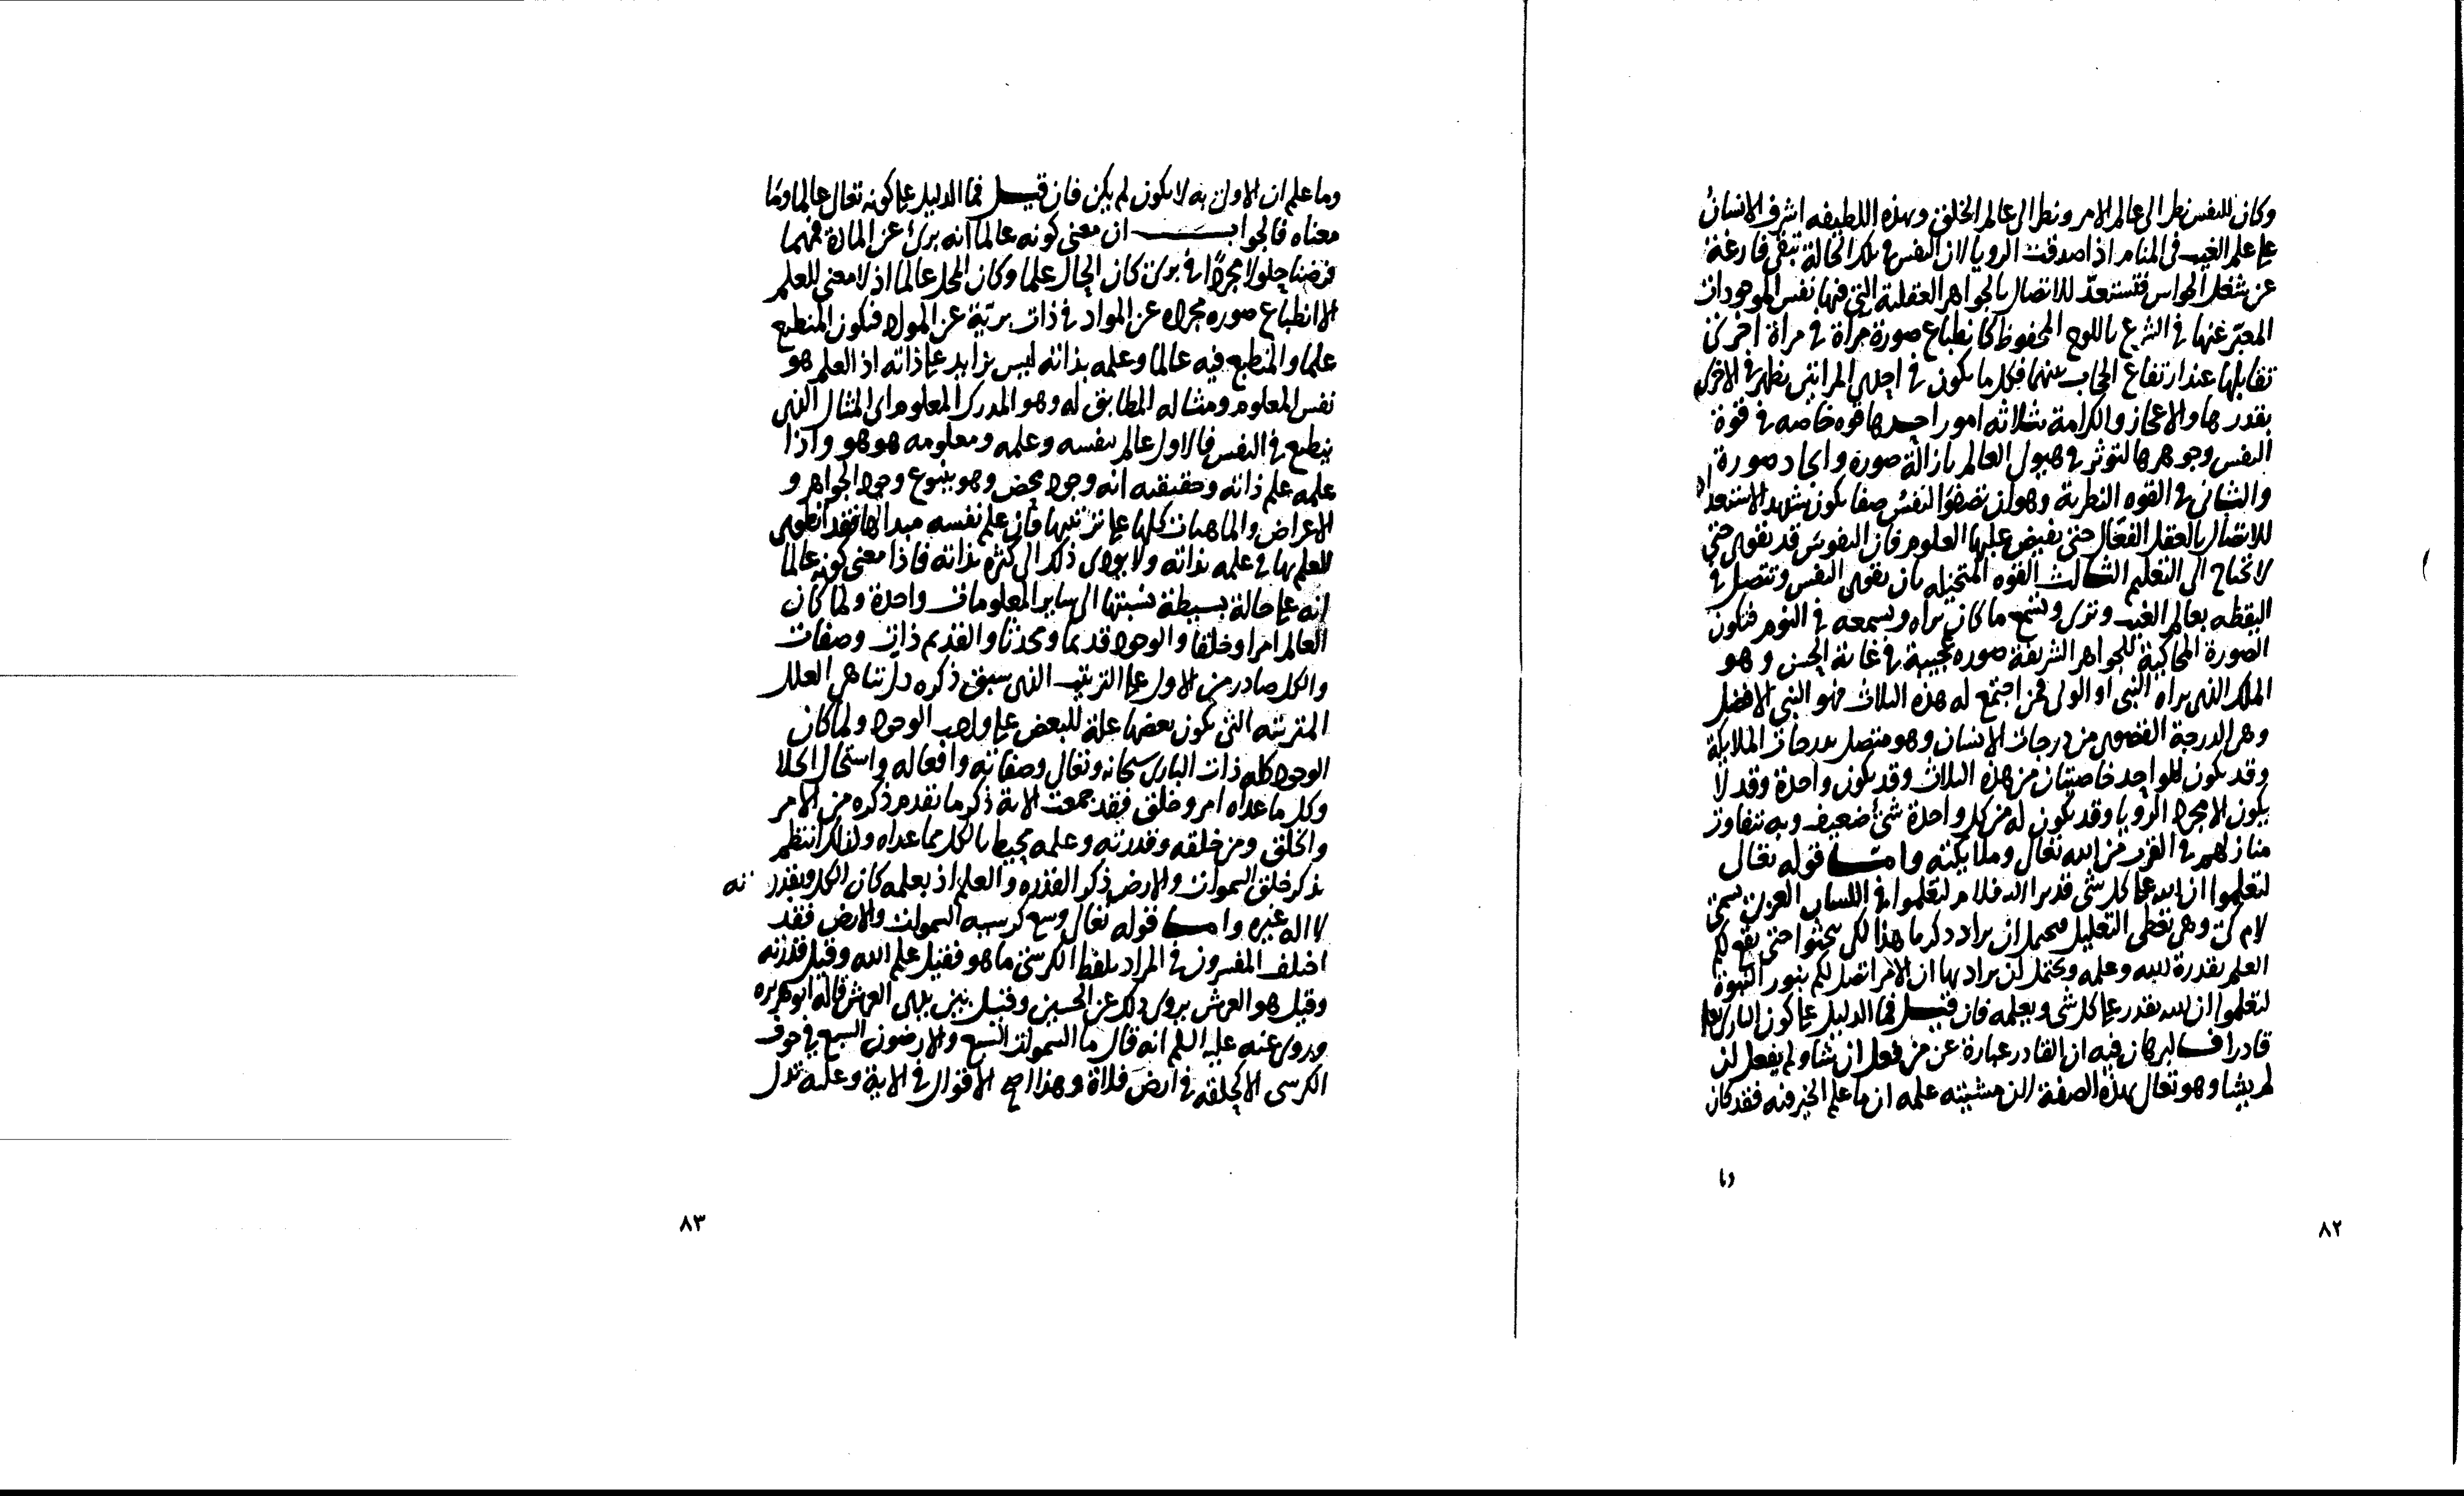 وكان للنفس نظر الى عالم الامر ونظر الى عالم الخلق وبهذه اللطيفه اشرف الانسان
على علم الغيب فى المنام اذا صدقت الرويا لان النفس فى تلك الحالة تبقى فارغة
عن شغل الحواس فتستعدّ للاتصال بالجواهر العقلية التى فيها نفس الموجودات
المعبّر عنها فى الشرع باللوح المحفوظ كانطباع صورة مراة فى مراة اخرى
تقابلها عند ارتفاع الحجاب بينهما فكل ما يكون فى احدى المراتين يظهر فى الاخرى
بقدرها والاعجاز والكرامة بثلاثه امور احدها قوه خاصه فى قوة
النفس وجوهرها لتوثر فى هيولى العالم بازالة صورة وايجاد صورة
والثانى فى القوه النظرية وهو ان تصفوا النفس صفا يكون شديد الاستعداد
للاتصال بالعقل الفعّال حتى يفيض عليها العلوم فان النفوس قد تقوى حتى
لا تحتاج الى التعليم الثالث القوه المتخيله بان تقوى النفس وتتصل فى
اليقظه بعالم الغيب وترى وتسمع ما كان يراه ويسمعه فى النوم فتكون
الصورة المحاكية للجواهر الشريفة صوره عجيبة فى غاية الحسن وهو
الملك الذى يراه النبى او الولى فمن اجتمع له هذه الثلاث فهو النبى الافضل
وهى الدرجة القصوى من درجات الانسان وهو متصل بدرجات الملايكة
وقد يكون للواحد خاصيتان من هذه الثلاث وقد يكون واحدة وقد لا
يكون الا مجرد الرويا وقد يكون له من كل واحدة شىء ضعيف وبه تتفاوت
منازلهم فى القرب من الله تعالى وملايكته واما قوله تعالى
لتعلموا ان الله على كل شى قدير الاية فلام لتعلموا فى اللسان العربى تسمى
لام كى وهى تعطى التعليل فيحتمل ان يراد ذكر ما هذا لكى تبحثوا حتى يقع لكم
العلم بقدرة الله وعلمه ويحتمل ان يراد بها ان الامر اتصل لكم بنور النبوة
لتعلموا ان الله يقدر على كل شى ويعلمه فان قيل فما الدليل على كون البارى تعالى
قادرا فالبرهان فيه ان القادر عبارة عن من فعل ان شا ولم يفعل ان
لم يشا وهو تعالى بهذه الصفة لان مشيته علمه ان ما علم الخير فيه فقد كان
وما
٨٢
وما علم ان الاولى به لا يكون لم يكن فان قيل فما الدليل على كونه تعالى عالما وما
معناه فالجواب ان معنى كونه عالما انه برئ عن المادة فمهما
فرضنا حلولا مجردا فى برئ كان الحال علما وكان المحل عالما اذ لا معنى للعلم
الا انطباع صوره مجرده عن المواد فى ذات بريّة عن المواد فيكون المنطبع
علما والمنطبع فيه عالما وعلمه بذاته ليس بزايد على ذاته اذ العلم هو
نفس المعلوم ومثاله المطابق له وهو المدرك المعلوم اى المثال الذى
ينطبع فى النفس فالاول عالم بنفسه وعلمه ومعلومه هو هو واذا
علمه علم ذاته وحقيقته انه وجود محض وهو ينبوع وجود الجواهر و
الاعراض والماهيات كلها على ترتيبها فان علم نفسه مبدا لها فقد انطوى
العلم بها فى علمه بذاته ولا يودى ذلك الى كثره بذاته فاذا معنى كونه عالما
انه على حالة بسيطة نسبتها الى ساير المعلومات واحدة ولما كان
العالم امرا وخلقا والوجود قديما ومحدثا والقديم ذات وصفات
والكل صادر من الاول على الترتيب الذى سبق ذكره دل تناهى العلل
المترتبه التى يكون بعضها علة للبعض على واجب الوجود ولما كان
الوجود كله ذات البارى سبحانه وتعالى وصفاته وافعاله واستحال الخلا
وكل ما عداه امر وخلق فقد جمعت الاية ذكر ما تقدم ذكره من الامر
والخلق ومن خلقه وقدرته وعلمه محيط بالكل مما عداه ولذلك انتظم
بذكر خلق السموات والارض ذكر القدره والعلم اذ بعلمه كان الكل وبقدرته
لا اله غيره واما قوله تعالى وسع كرسيه السموات والارض فقد
اختلف المفسرون فى المراد بلفظ الكرسى ما هو فقيل علم الله وقيل قدرته
وقيل هو العرش يروى ذلك عن الحسن وقيل بين يدى العرش قاله ابو هريره
وروى عنه عليه السلم انه قال ما السموات السبع والارضون السبع فى جوف
الكرسى الا كحلقه فى ارض فلاة وهذا اصح الاقوال فى الاية وعليه تدل
٨٣